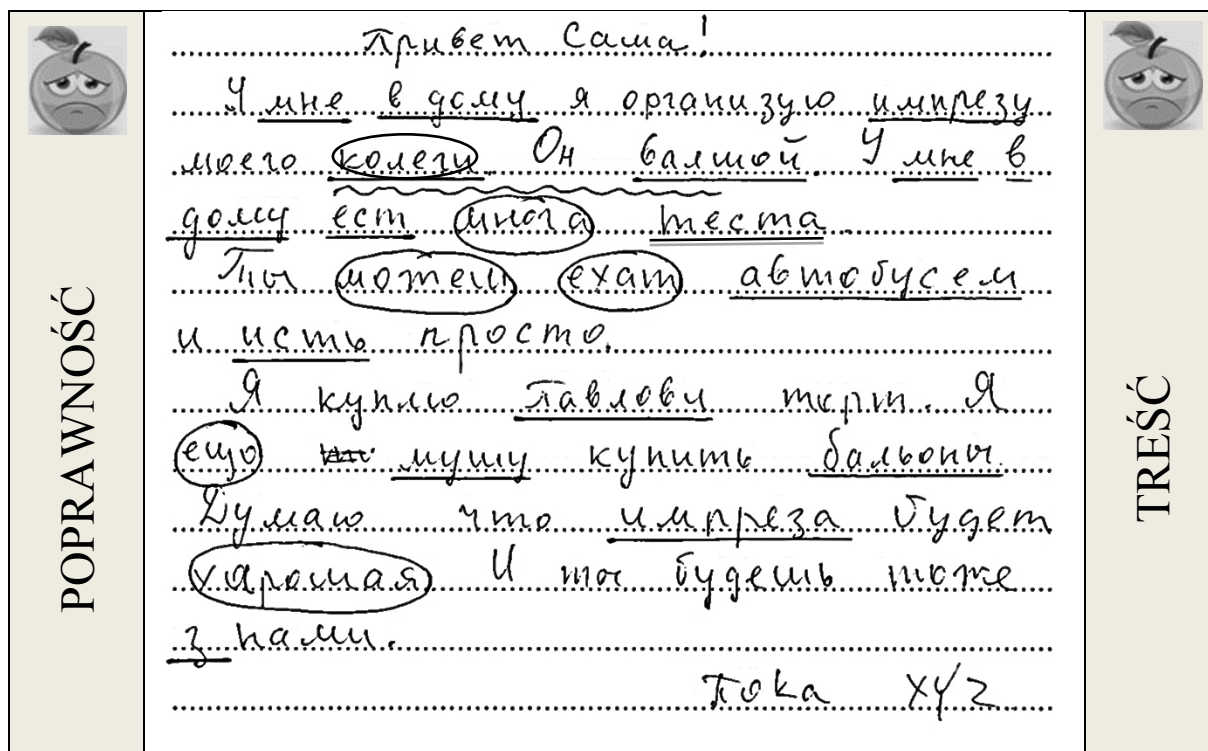 POPRAWNOŚĆ
Привет Саша!
У мне в дому я организую импрезу
моего колеги. Он валшой. У мне в
дому ест многа теста.
Ты можеш ехат автобусем
и исть просто.
Я куплю Павлови торт. Я
ещо мушу купить бальоны.
Думаю что импреза будет
харошая И ты будешь тоже
з нами.
Пока XYZ
TREŚĆ